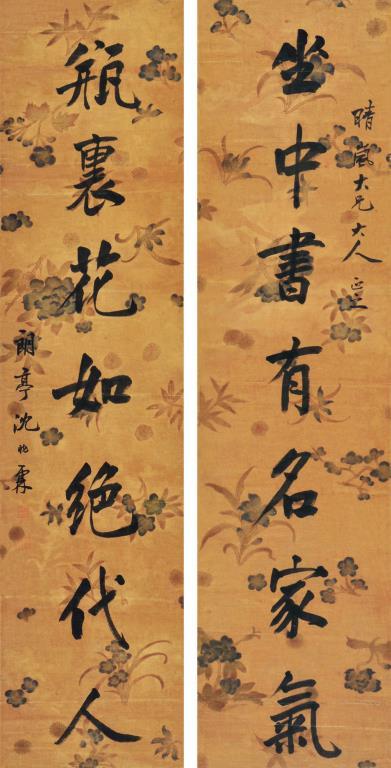 晴嵐大兄大人正之
坐中書有名家氣
瓶裏花如絕代人
朗亭沈兆霖